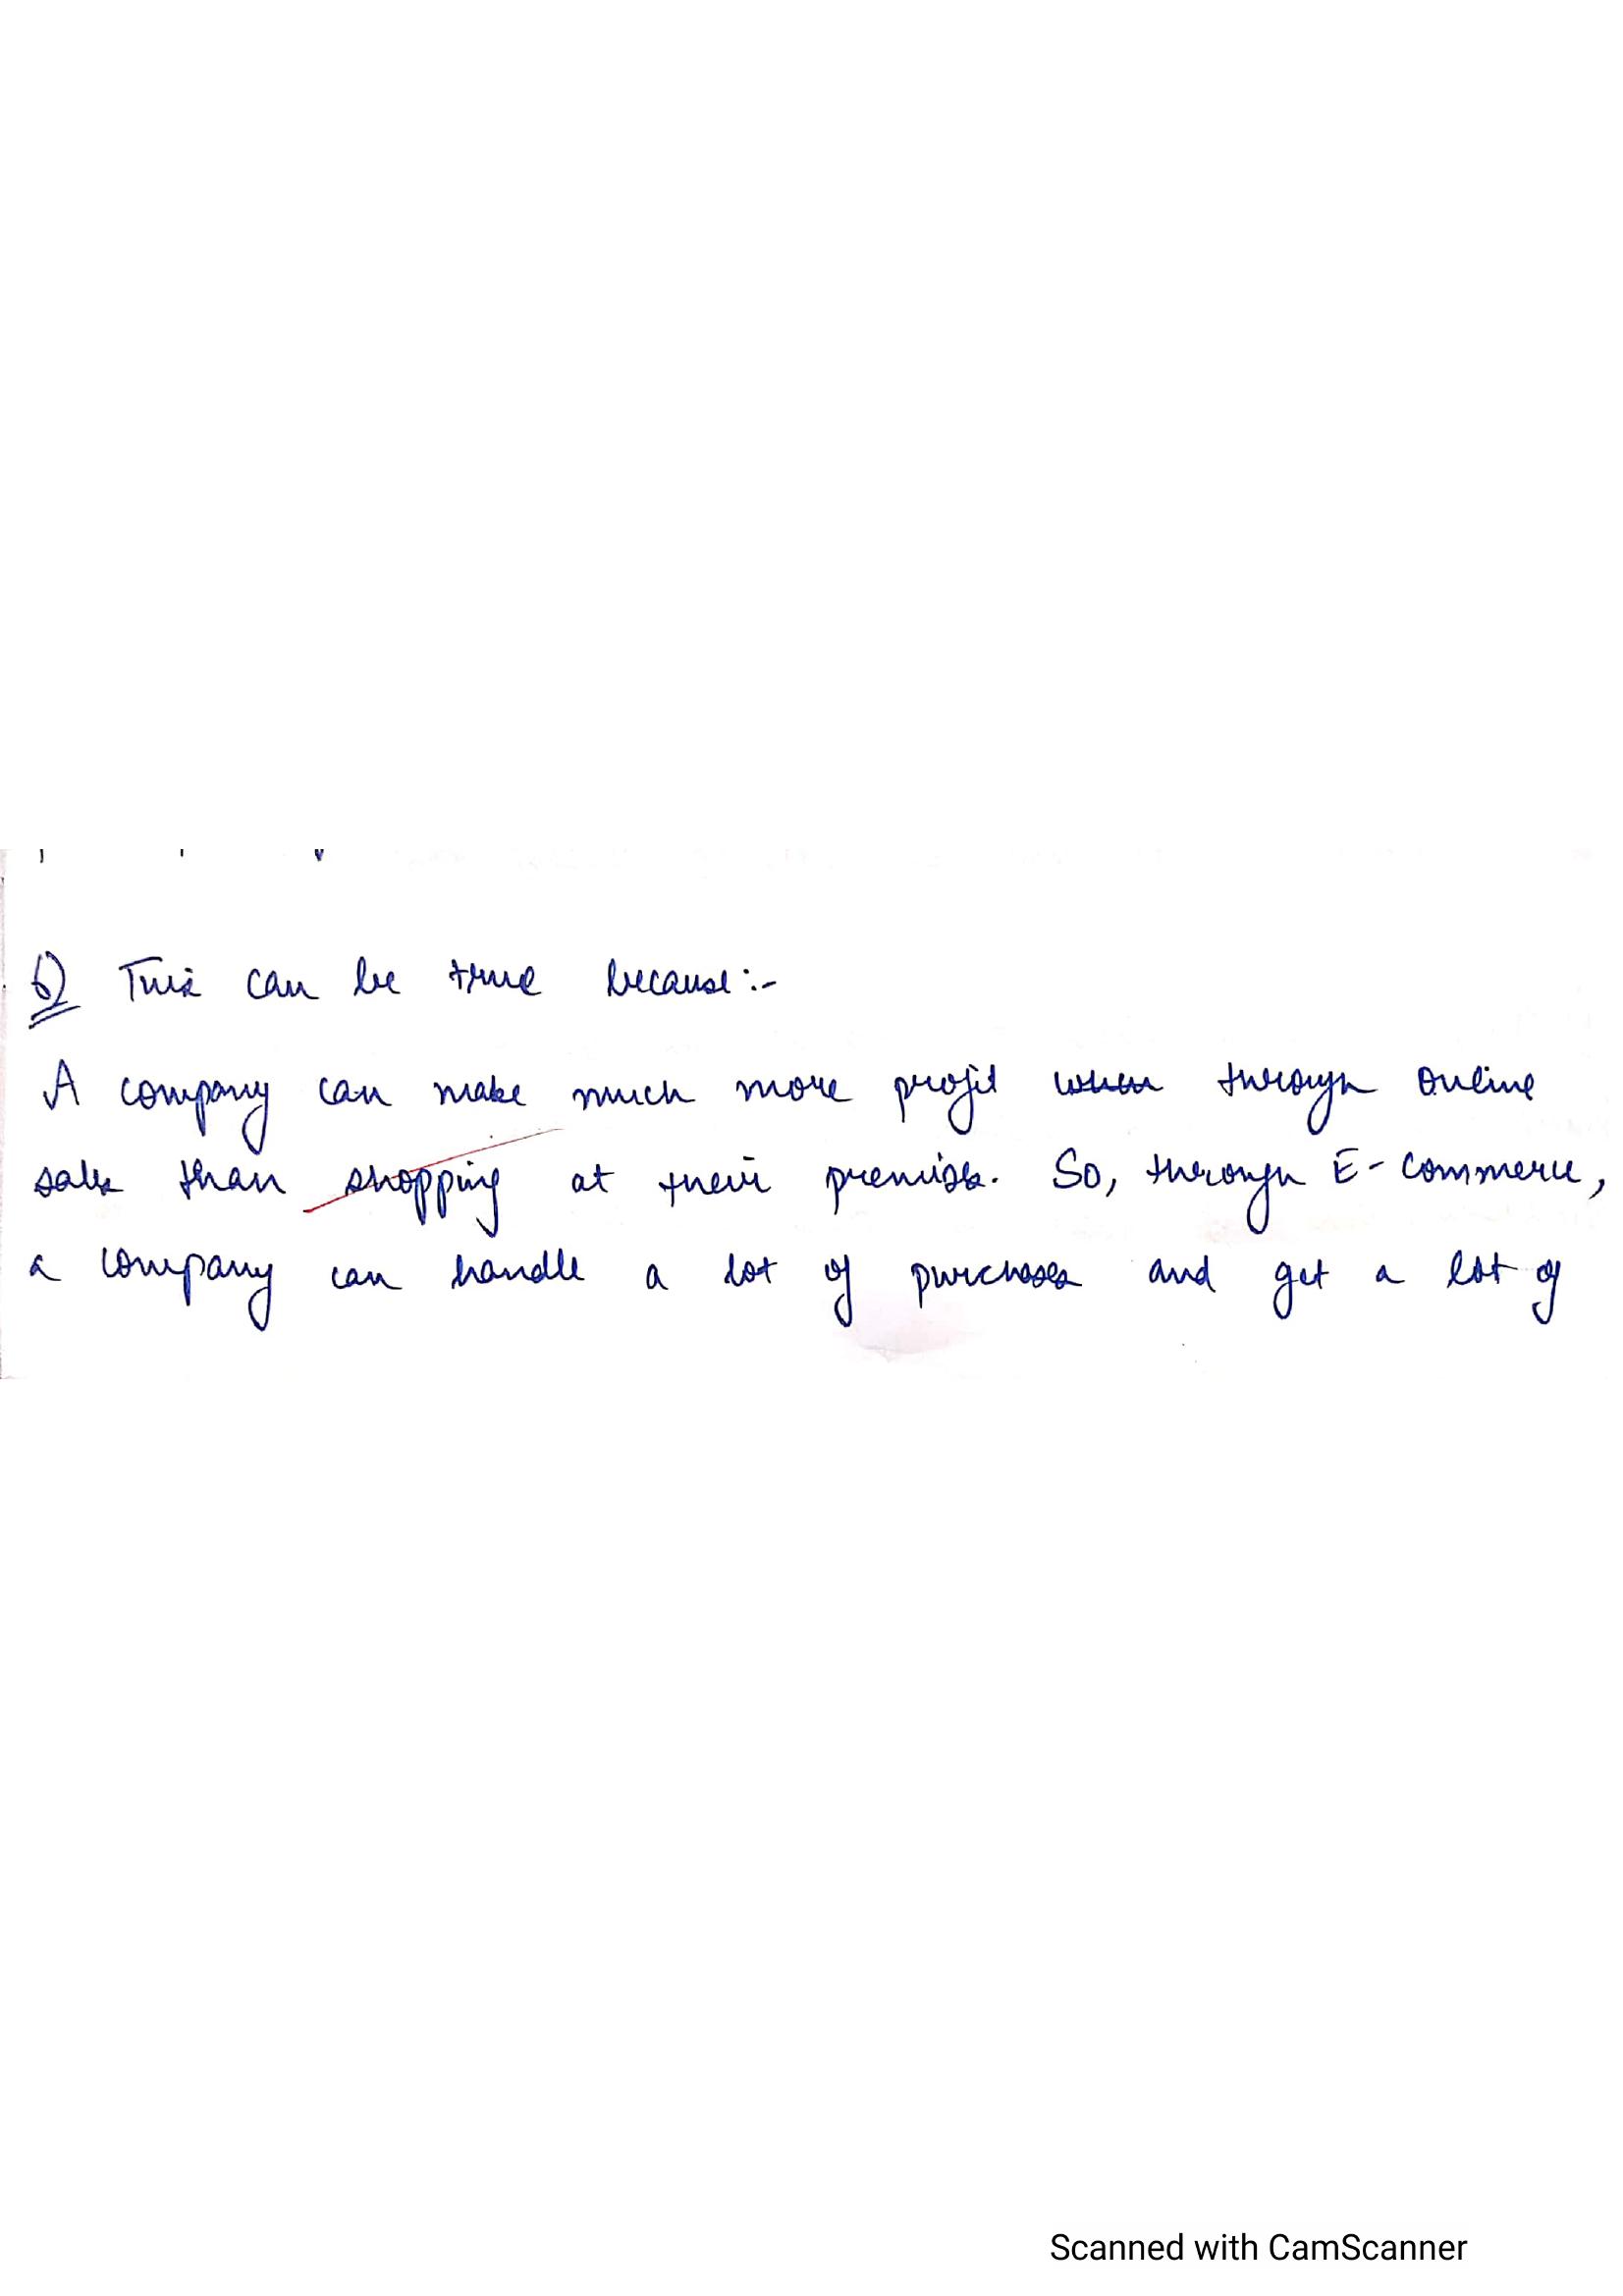 6) This can be true because:-
A company can make much more profit when through online
sales than shopping at their premises. So, through E-commerce,
a company can handle a lot of purchases and get a lot of
Scanned with CamScanner